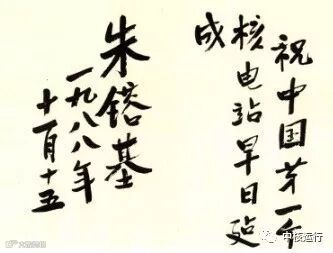 祝中国第一个
核电站早日建
成
朱镕基
一九八八年
十一月十五
中核运行